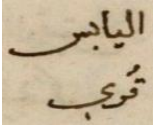 اليابس
قُوي